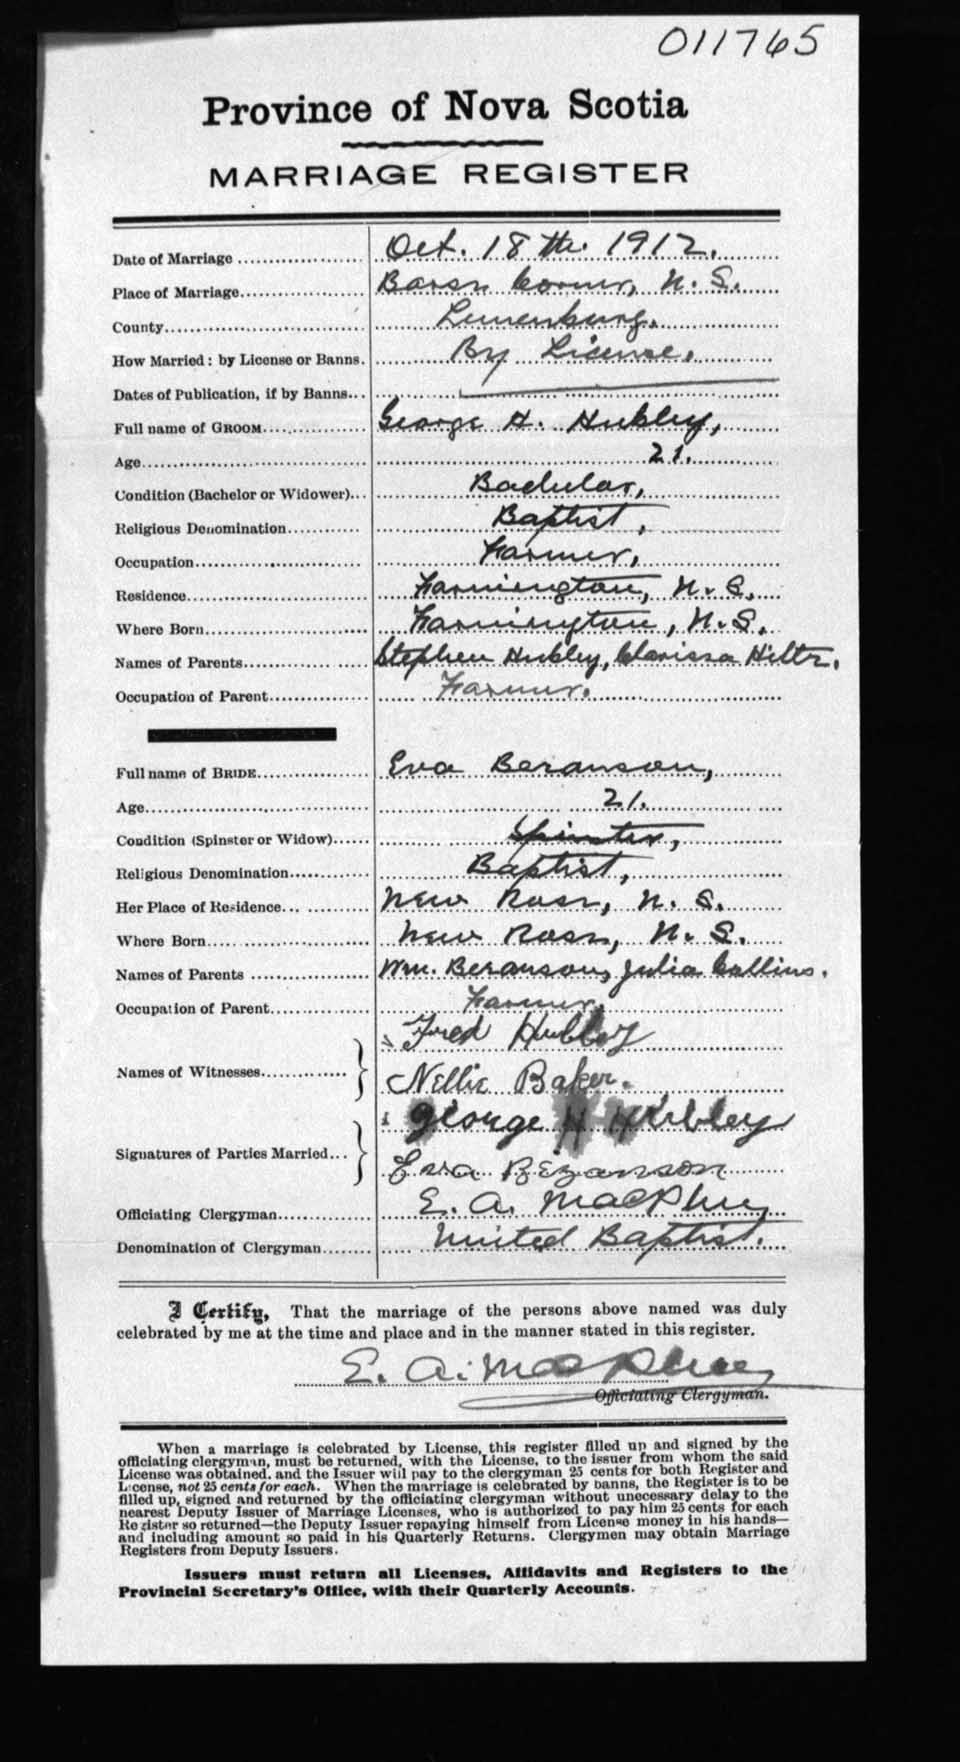 011765
Province of Nova Scotia
MARRIAGE REGISTER
Date of Marriage Oct. 18th. 1912.
Place of Marriage Barss Corner, N. S.
County Lunenburg.
How Married: by License or Banns. By License.
Dates of Publication, if by Banns
Full name of GROOM George H. Hubley,
Age 21.
Condition (Bachelor or Widower) Bachelor,
Religious Denomination Baptist,
Occupation Farmer,
Residence Farmington, N. S.
Where Born Farmington, N.S.
Names of Parents Stephen Hubley, Clarissa Hiltz.
Occupation of Parent Farmer.
Full name of BRIDE Eva Bezanson,
Age 21.
Condition (Spinster or Widow) Spinster,
Religious Denomination Baptist,
Her Place of Residence New Ross, N. S.
Where Born New Ross, N. S.
Names of Parents Wm. Bezanson, Julia Collins.
Occupation of Parent Farmer
Names of Witnesses Fred Hubley
Nellie Baker.
Signatures of Parties Married George H Hubley
Eva Bezanson
Officiating Clergyman E. A. MacPhee
Denomination of Clergyman United Baptist.
I Certify, That the marriage of the persons above named was duly
celebrated by me at the time and place and in the manner stated in this register.
E. A. MacPhee
Officiating Clergyman.
When a marriage is celebrated by License, this register filled up and signed by the
officiating clergyman, must be returned, with the License, to the issuer from whom the said
License was obtained, and the Issuer will pay to the clergyman 25 cents for both Register and
License, not 25 cents for each. When the marriage is celebrated by banns, the Register is to be
filled up, signed and returned by the officiating clergyman without unecessary delay to the
nearest Deputy Issuer of Marriage Licenses, who is authorized to pay him 25 cents for each
Register so returned—the Deputy Issuer repaying himself from License money in his hands—
and including amount so paid in his Quarterly Returns. Clergymen may obtain Marriage
Registers from Deputy Issuers.
Issuers must return all Licenses, Affidavits and Registers to the
Provincial Secretary's Office, with their Quarterly Accounts.